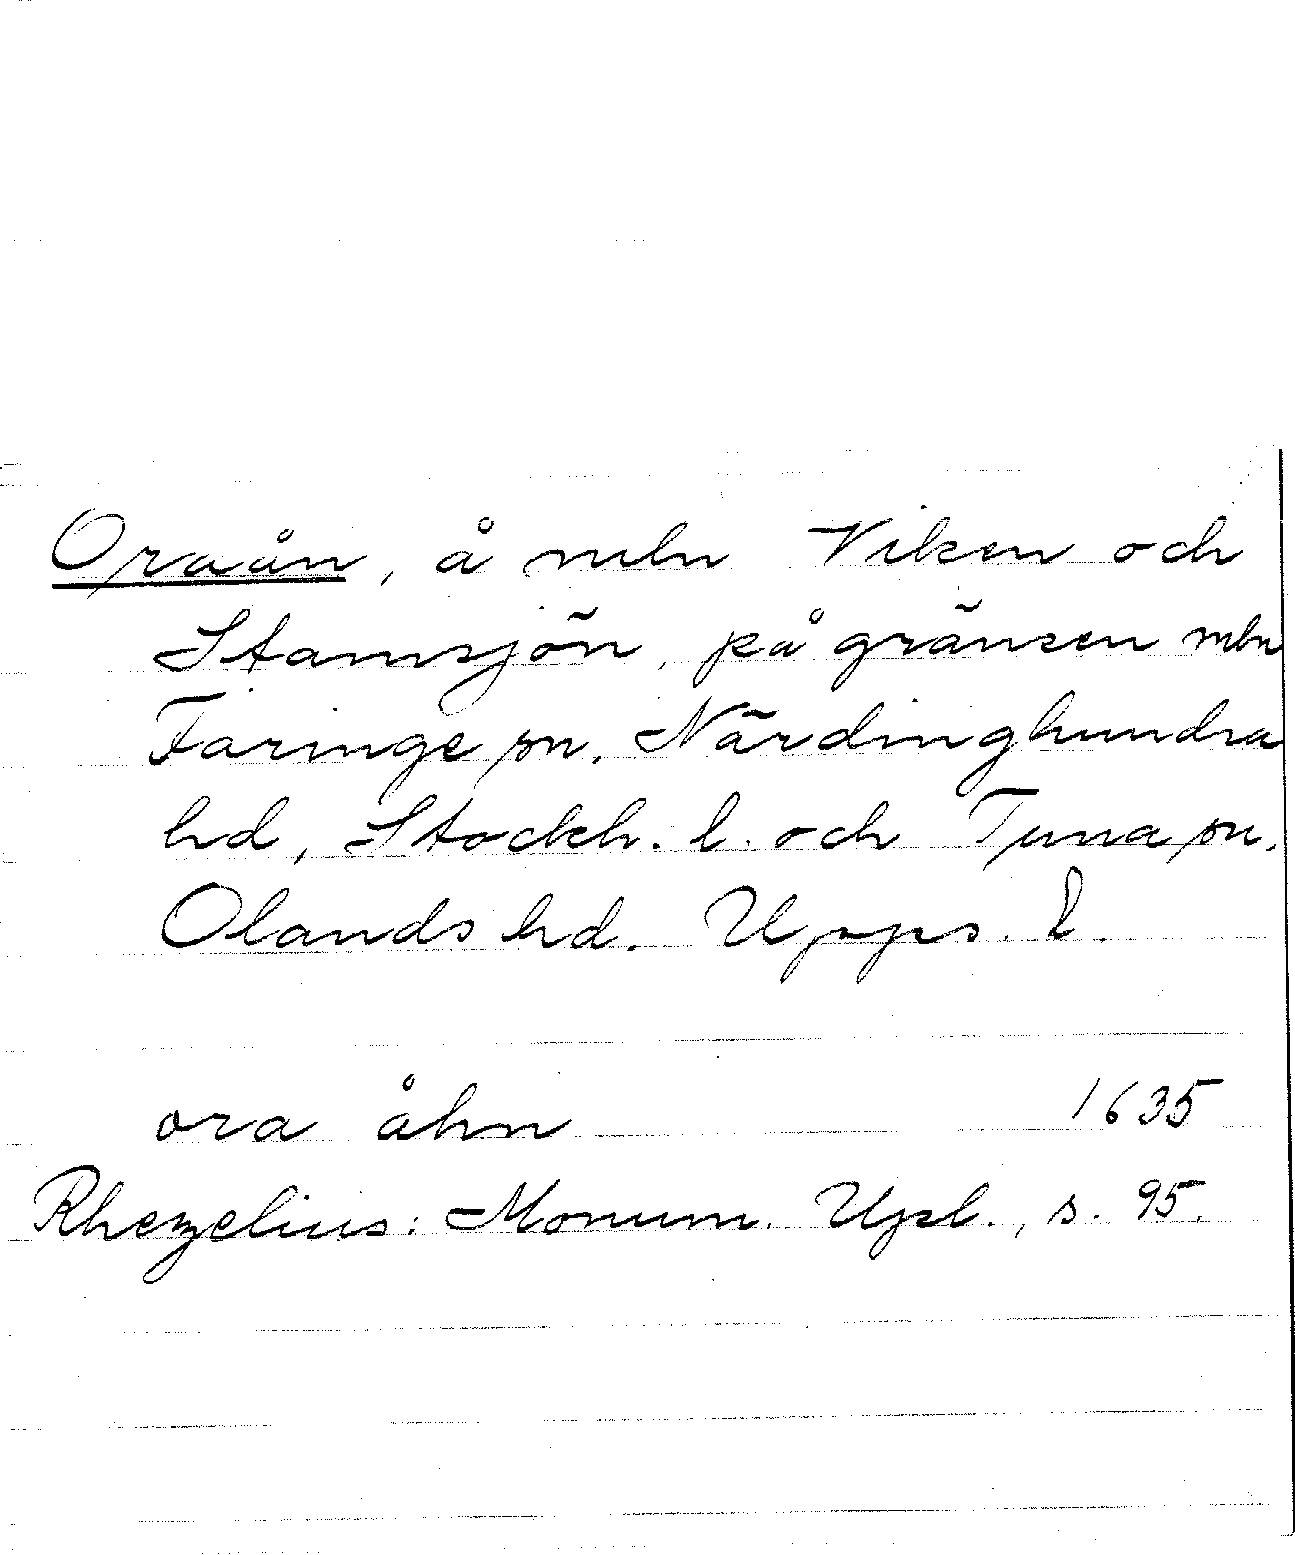 Oraån, å mln Viken och
Stamsjön, på gränsen mln
Faringe sn. Närdinghundra
hd, Stockh. l. och Tuna sn.
Olands hd. Upps. l.
ora åhn 1635
Rhezelius: Monum. Upl., s. 95.